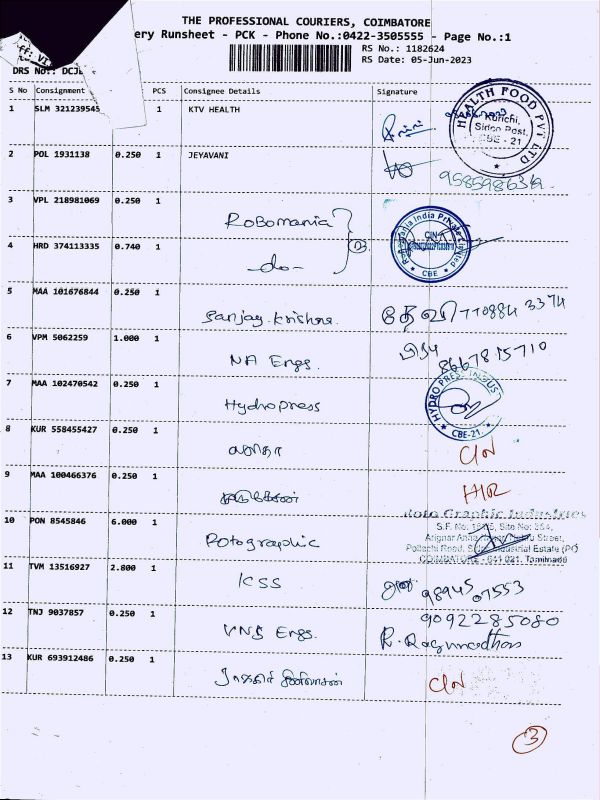 THE PROFESSIONAL COURIERS, COIMBATORE
ery Runsheet - PCK - Phone No.:0422-3505555 - Page No.:1
RS No.: 1182624
RS Date: 05-Jun-2023
DRS No.: DCJ
S No Consignment PCS Consignee Details Signature
1 SLM 321239545 1 KTV HEALTH
HEALTH FOOD PVT LTD
Kurichi,
Sidco Post,
CBE - 21
2 POL 1931138 0.250 1 JEYAVANI
3 VPL 218981069 0.250 1 Robomania
Robomania India Private Limited
CIN
CBE
4 HRD 374113335 0.740 1 -do-
5 MAA 101676844 0.250 1 Sanjay Krishna. தேவி 770884 3374
6 VPM 5062259 1.000 1 NA Engs. 8667815710
7 MAA 102470542 0.250 1 Hydropress
HYDRO PRESS INDUS
CBE-21.
8 KUR 558455427 0.250 1 C/N
9 MAA 100466376 0.250 1
10 PON 8545846 6.000 1 Rotographic
Roto Graphic Industries
S.F. No: Site No: 254,
Arignar Anna Street,
Pollachi Road, Industrial Estate (PO)
COIMBATORE - 641 021. Tamilnadu
11 TVM 13516927 2.800 1 KSS 98945 07553
12 TNJ 9037857 0.250 1 VNS Engs. 9092285080
R. Ragunadhan
13 KUR 693912486 0.250 1 C/N
3